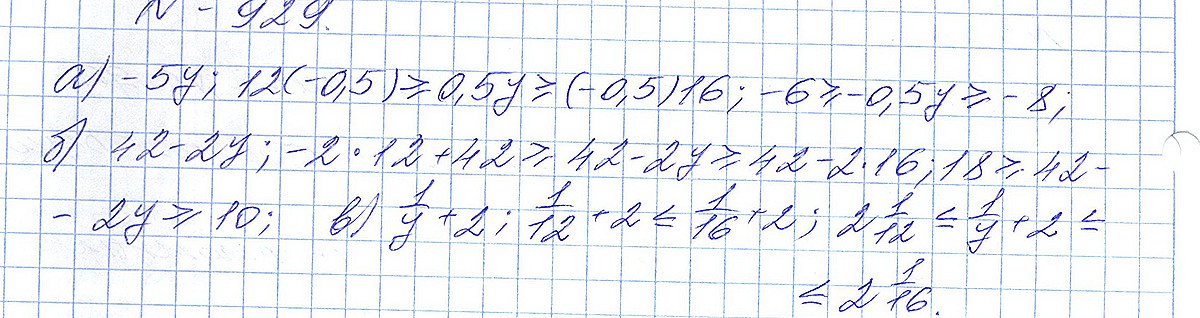 N - 929.
а) -5y; 12(-0,5) ≥ 0,5y ≥ (-0,5)16; -6 ≥ -0,5y ≥ -8;
б) 42-2y; -2·12+42 ≥ 42-2y ≥ 42-2·16; 18 ≥ 42-
- 2y ≥ 10; в) 1/y + 2; 1/12 + 2 ≤ 1/16 + 2; 2 1/12 ≤ 1/y + 2 ≤
≤ 2 1/16.